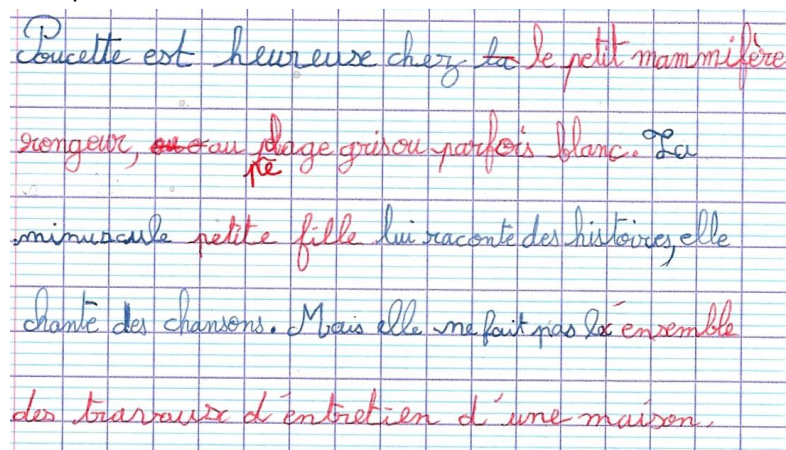 Poucette est heureuse chez la le petit mammifère
rongeur, au plage gris ou parfois blanc. La
pe
minuscule petite fille lui raconte des histoires, elle
chante des chansons. Mais elle ne fait pas la ensemble
des travaux d'entretien d'une maison.